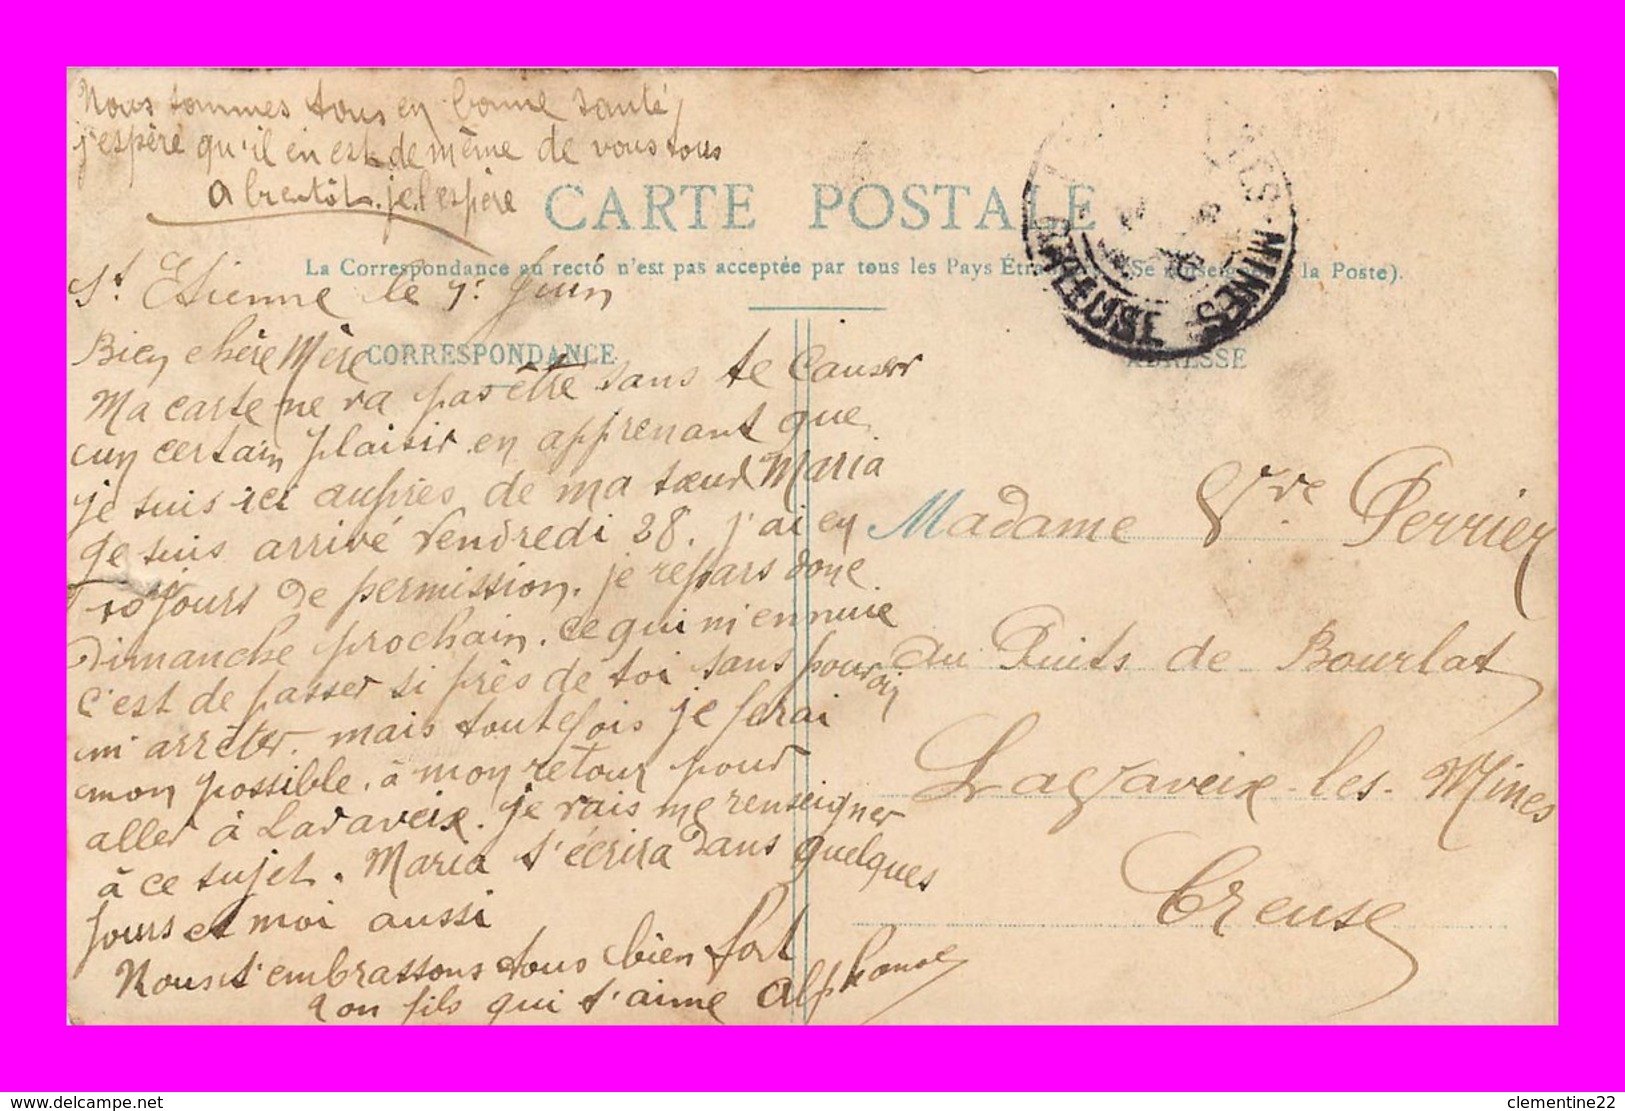 Nous sommes tous en bonne santé,
j'espère qu'il en est de même de vous tous
a bientôt. je l'espère
CARTE POSTALE
La Correspondance au recto n'est pas acceptée par tous les Pays Étra (Se renseigne la Poste).
St Etienne le 1r Juin
CORRESPONDANCE
ADRESSE
MINES
Bien chère Mère
Ma carte ne va pas être sans te causer
un certain plaisir en apprenant que
je suis ici auprès de ma sœur Maria
Je suis arrivé Vendredi 28. j'ai en
10 jours de permission. je repars donc
Dimanche prochain. ce qui m'ennuie
c'est de passer si près de toi sans pouvoir
m'arrêter. mais toutefois je ferai
mon possible. à mon retour pour
aller à Lavaveix. je vais me renseigner
à ce sujet. Maria t'écrira dans quelques
jours et moi aussi
Nous t'embrassons tous bien fort
ton fils qui t'aime Alphonse
Madame Vve Perrier
au Puits de Bourlat
Lavaveix-les-Mines
Creuse
www.delcampe.net
clementine22